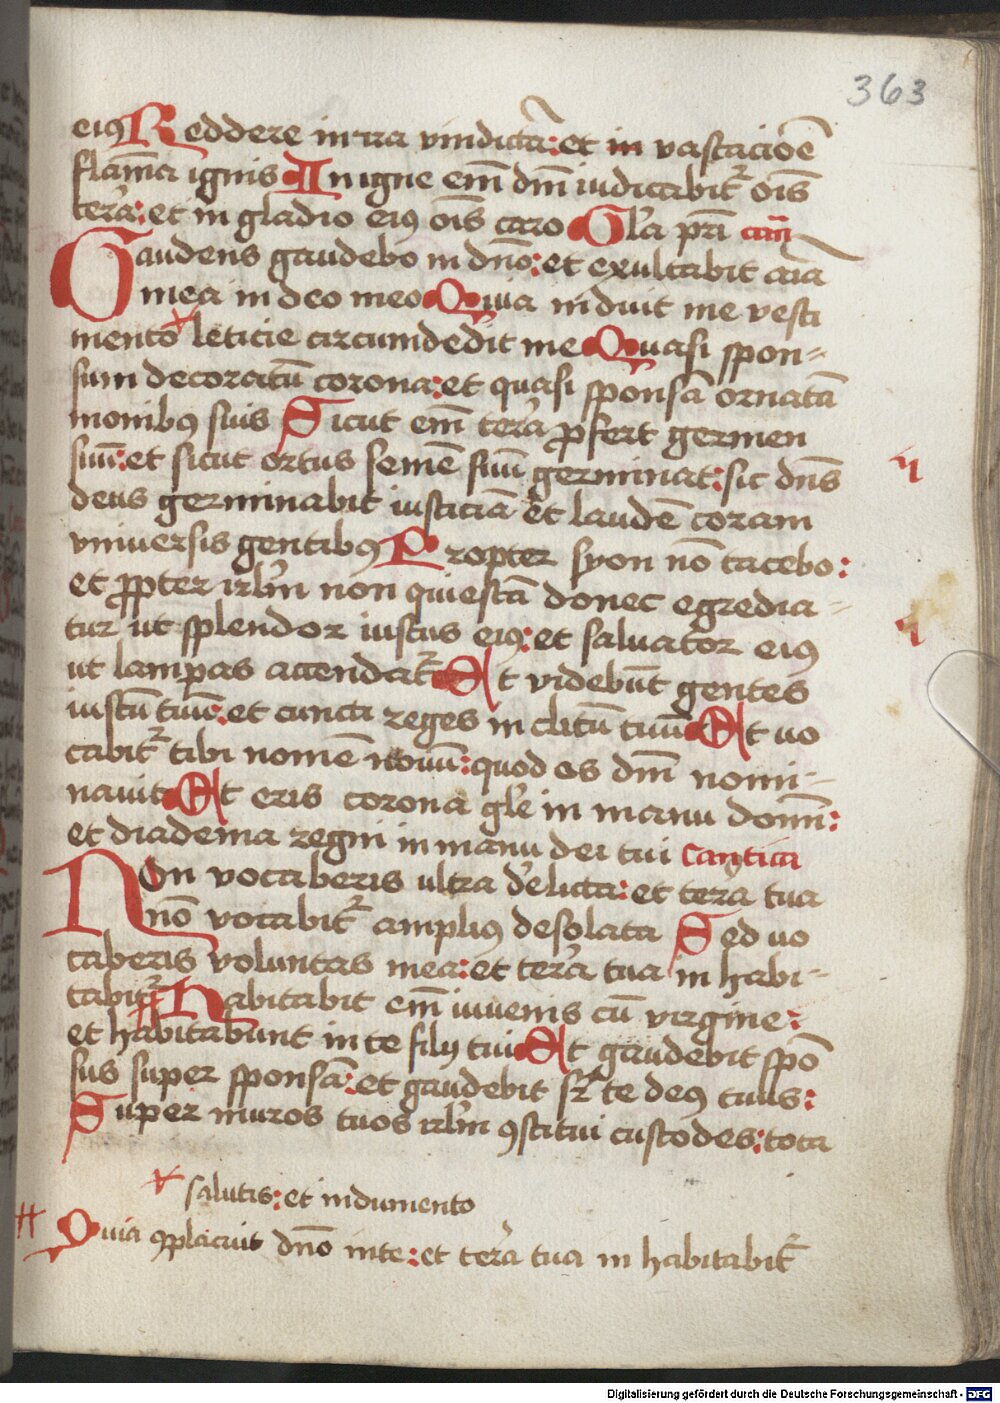 363
eiꝰ Reddere in ira vindictā: et in vastacioē
flam̄a ignis In igne em̄ dm̄ iudicabit᷑ oīs
terra: et in gladio eiꝰ oīs caro Gl'a pr̄i can̄
Gaudens gaudebo in dn̄o: et exultabit aīa
mea in deo meo Quia induit me vesti
mento leticie circumdedit me Quasi spon⸗
sum decoratū corona: et quasi sponsā ornatā
monibꝰ suis Sicut em̄ terra ꝓfert germen
suū: et sicut ortus semē suū germinat: sic dn̄s
deus germinabit iusticiā et laudē coram
vniuersis gentibꝰ Propter syon nō tacebo:
et ꝓpter irl'm non quiescā donec egredia⸗
tur ut splendor iustus eiꝰ: et saluator eiꝰ
ut lampas accendat᷑ Et videbūt gentes
iustū tuū: et cuncti reges in clitū tuū Et uo
cabit᷑ tibi nomē nouū: quod os dm̄ nomi⸗
nauit Et eris corona gl'e in manu domī:
et diadema regni in manu dei tui Cantica
Non vocaberis ultra d'elicta: et terra tua
nō vocabit᷑ ampliꝰ desolata Sed uo
caberis voluntas mea: et terra tua in habi⸗
tabit᷑ Habitabit em̄ iuuenis cū virgine:
et habitabunt in te filij tui Et gaudebit spō
sus super sponsā: et gaudebit sr̄ te deꝰ tuus:
Super muros tuos irl'm ꝯstitui custodes: tota
salutis: et indumento
Quia ꝯplacuit dn̄o in te: et terra tua in habitabit᷑
Digitalisierung gefördert durch die Deutsche Forschungsgemeinschaft - DFG